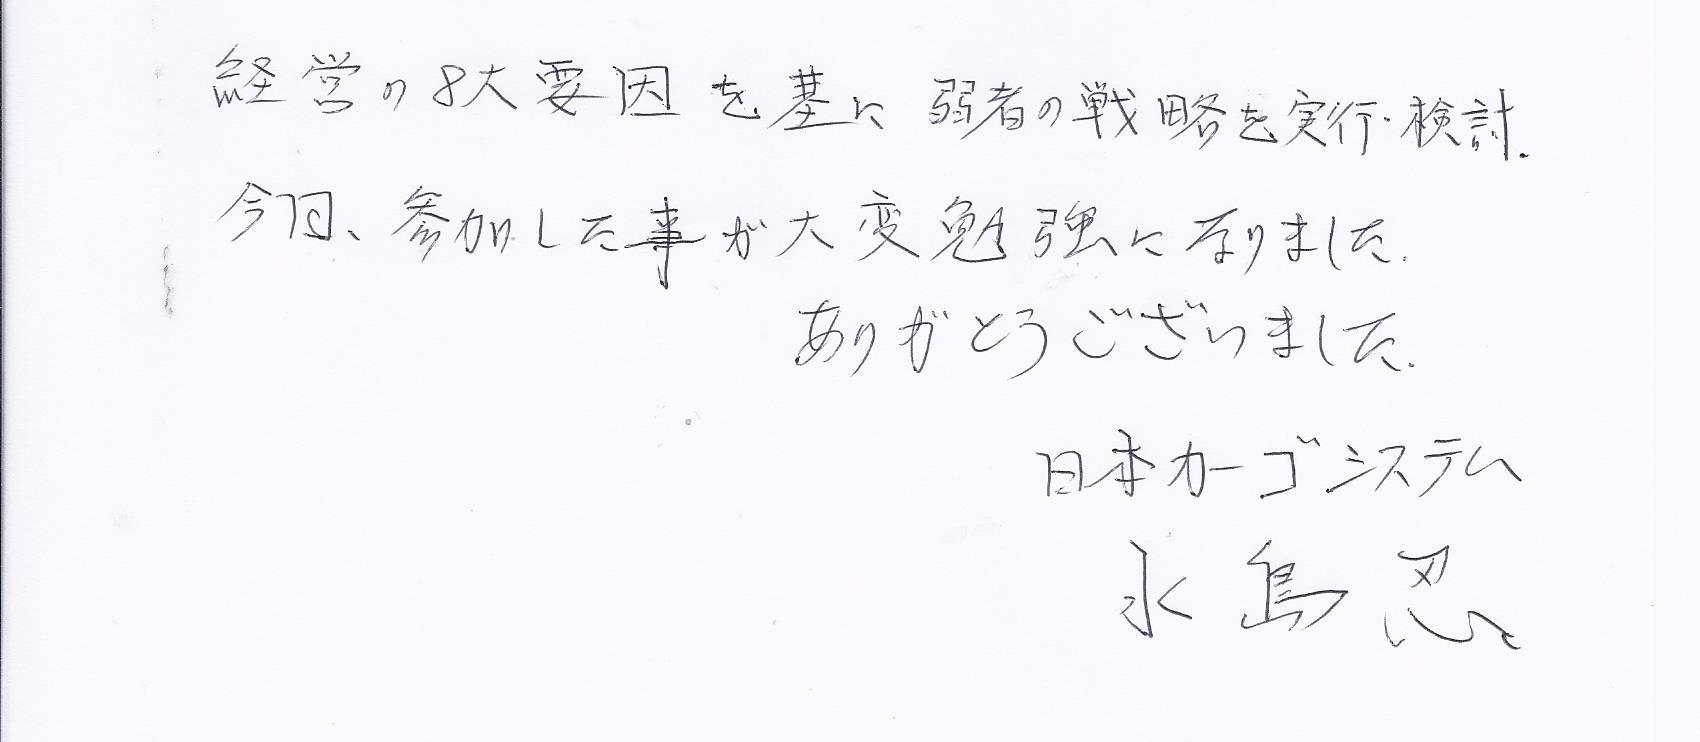 経営の8大要因を基に弱者の戦略を実行・検討.
今日、参加した事が大変勉強になりました.
ありがとうございました.
日本カーゴシステム
永島 忍